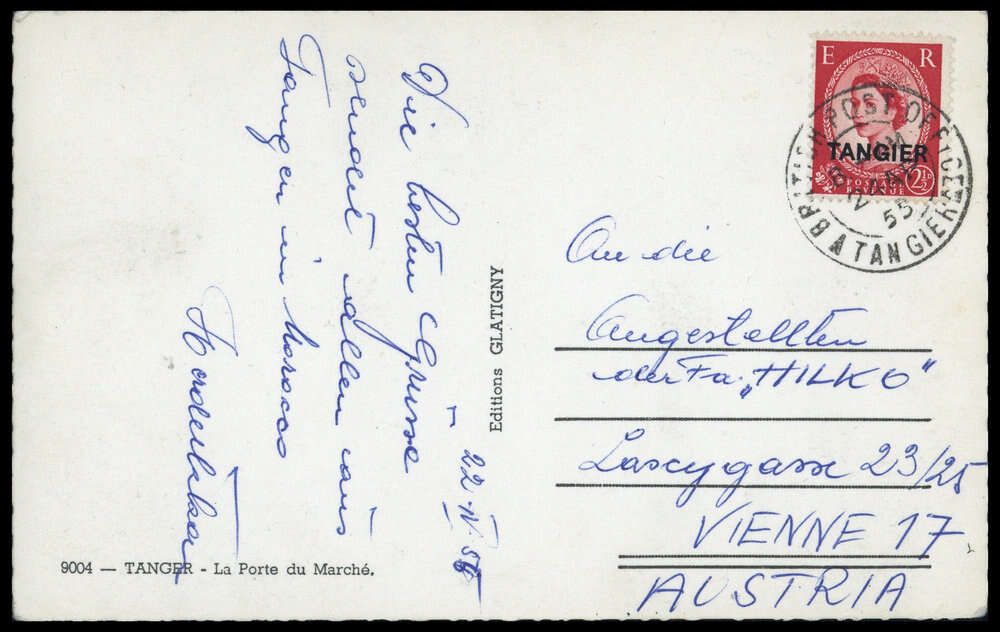 Die besten Grüsse
sendet allen aus
Tanger in Morocco
22.IV.55
9004 — TANGER - La Porte du Marché.
Editions GLATIGNY
E R
TANGIER
POSTAGE
REVENUE
2½D
BRITISH POST OFFICE
AP
55
TANGIER
An die
Angestellten
der Fa. „HILKO"
Lascygasse 23/25
VIENNE 17
AUSTRIA